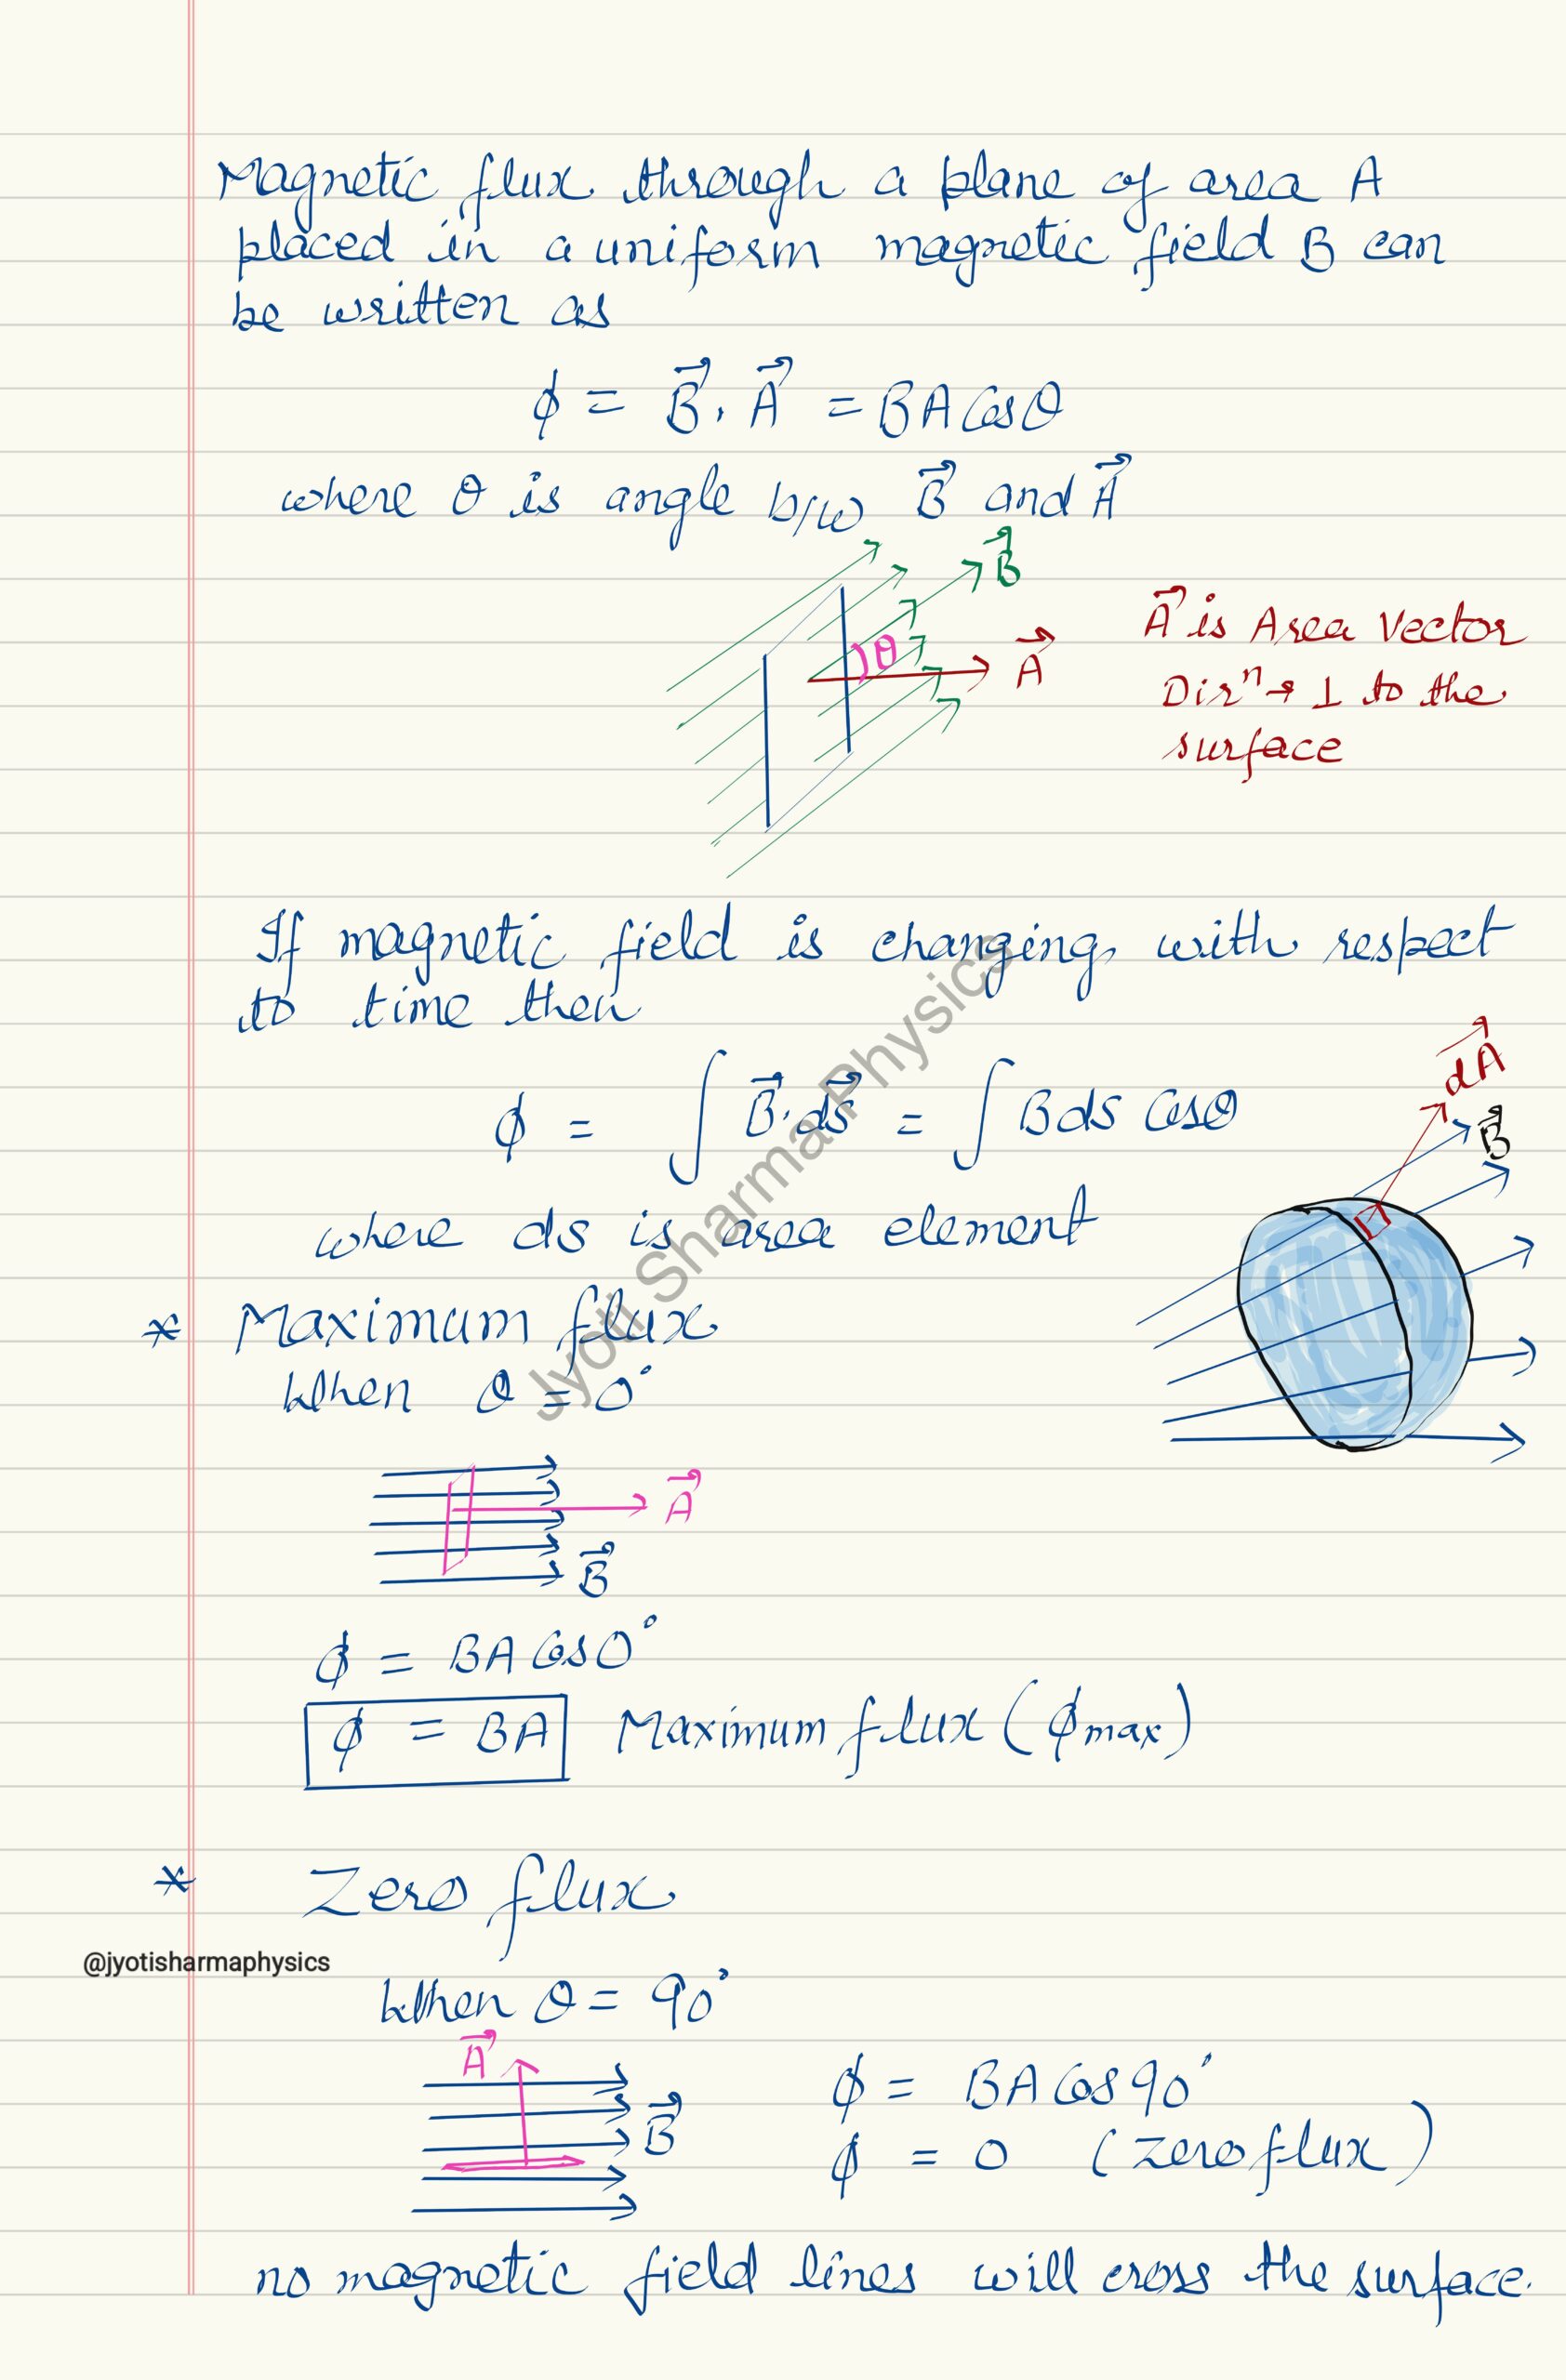 Magnetic flux through a plane of area A
placed in a uniform magnetic field B can
be written as
ϕ = B⃗ . A⃗ = BA Cosθ
where θ is angle b/w B⃗ and A⃗
B⃗
θ
A⃗
A⃗ is Area Vector
Dirⁿ → ⊥ to the
surface
If magnetic field is changing with respect
to time then
ϕ = ∫ B⃗ . ds⃗ = ∫ B ds Cosθ
where ds is area element
dA⃗
B⃗
* Maximum flux
When θ = 0°
A⃗
B⃗
ϕ = BA Cos 0°
ϕ = BA Maximum flux (ϕmax)
* Zero flux
@jyotisharmaphysics
When θ = 90°
A⃗
B⃗
ϕ = BA Cos 90°
ϕ = 0 (Zero flux)
no magnetic field lines will cross the surface.
Jyoti Sharma Physics